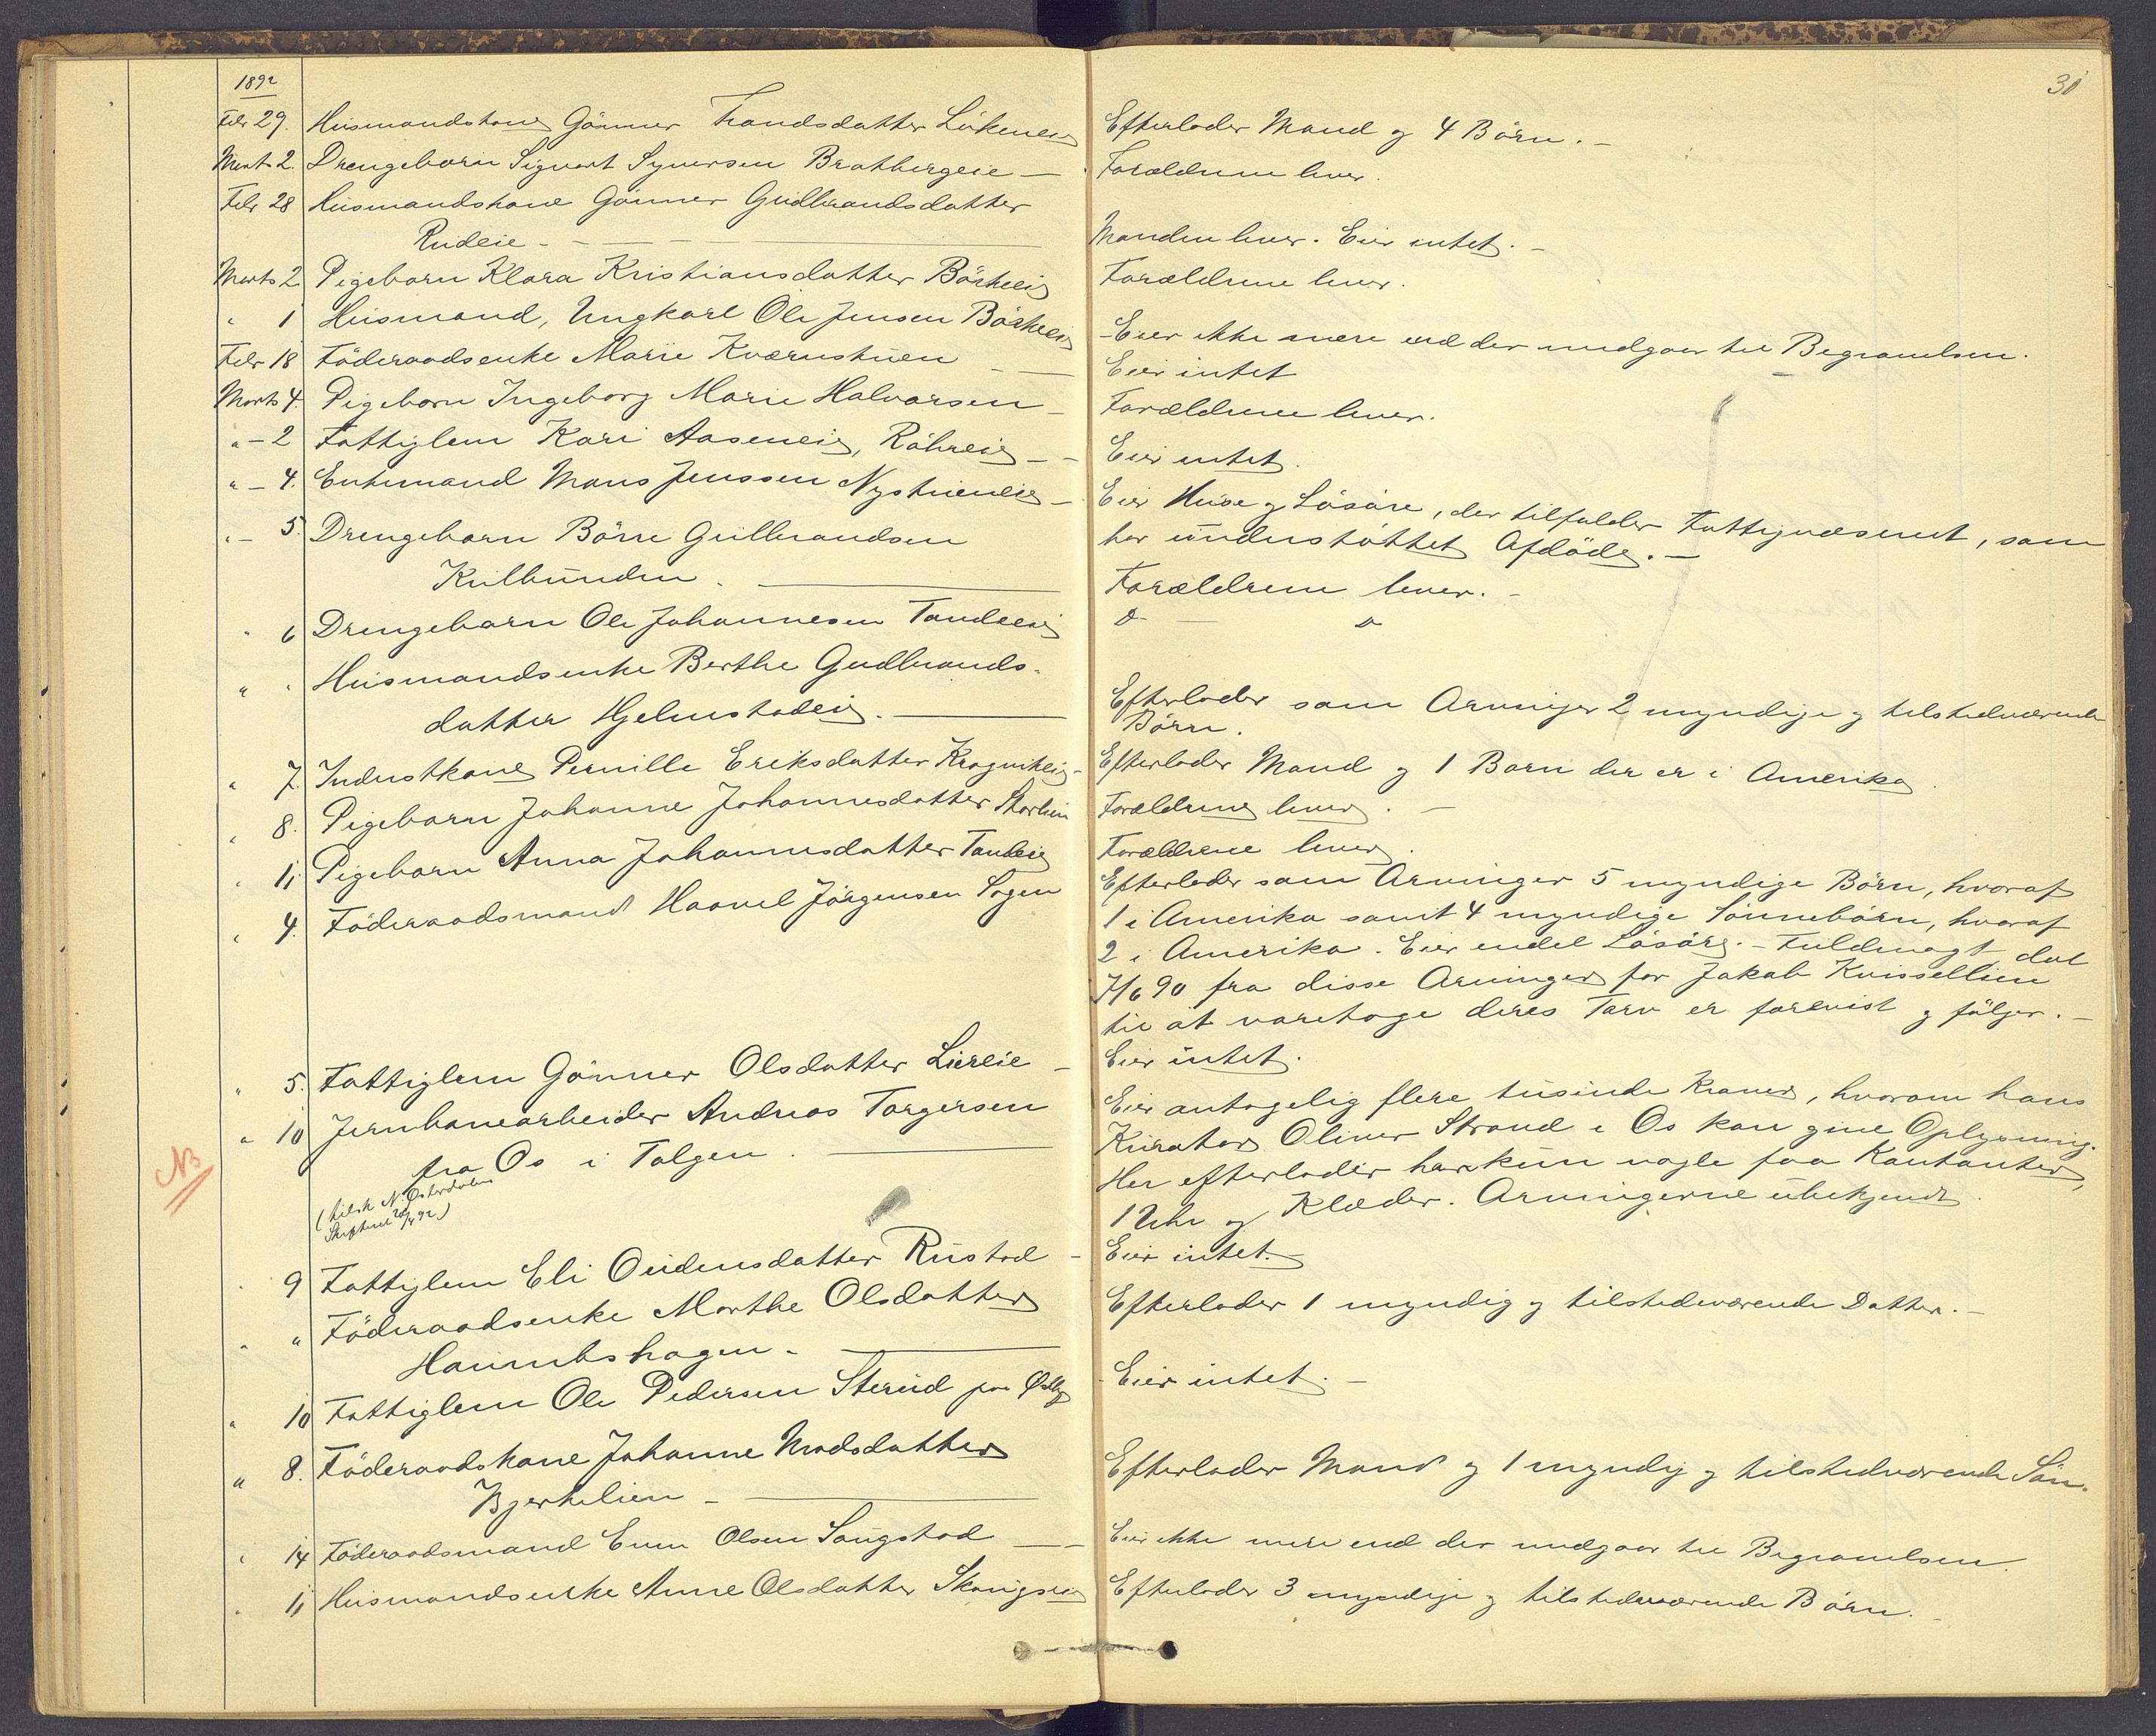 1892
30
Febr 29. Husmandskone Gönner Trondsdatter Lökeneie
Efterlader Mand og 4 Börn. -
Marts 2. Drengebarn Sigvart Syversen Bratbergeie -
Forældrene lever.
Febr 28 Husmandskone Gönner Gudbrandsdatter
Rudeie -
Manden lever. Eier intet. -
Marts 2 Pigebarn Klara Kristiansdatter Börkeeie
Forældrene lever.
" 1 Husmand, Ungkarl Ole Jensen Börkeeie
Eier ikke mere end der medgaar til Begravelsen.
Febr 18 Föderaadsenke Marie Kværnstuen
Eier intet
Marts 4. Pigebarn Ingeborg Marie Halvorsen -
Forældrene lever.
" - 2 Fattiglem Kari Aaseneie, Röhneie -
Eier intet.
" - 4. Enkemand Mons Jenssen Nystueneie -
Eier Huse og Lösöre, der tilfalder Fattigvæsenet, som
har understöttet Afdöde. -
" - 5. Drengebarn Börre Gulbrandsen
Kulbunden.
Forældrene lever. -
" 6 Drengebarn Ole Johannesen Tandeeie
D- D
" " Husmandsenke Berthe Gudbrands-
datter Hjelmstadeie.
Efterlader som Arvinger 2 myndige og tilstedværende
Börn.
" 7. Inderstkone Pernille Eriksdatter
Efterlader Mand og 1 Barn der er i Amerika.
" 8. Pigebarn Johanne Johannesdatter
Forældrene lever. -
" 11 Pigebarn Anna Johannesdatter Tandeie
Forældrene lever.
" 4. Föderaadsmand Haavel Jörgensen Sogen
Efterlader som Arvinger 5 myndige Börn, hvoraf
1 i Amerika samt 4 myndige Sönnebörn, hvoraf
2 i Amerika. Eier endel Lösöre. - Fuldmagt dat
7/6 90 fra disse Arvinger for Jakob Kvissellien
til at varetage deres Tarv er forevist og fölger. -
" 5. Fattiglem Gönner Olsdatter Liereie -
Eier intet.
" 10 Jernbanearbeider Andreas Torgersen
fra Os i Tolgen.
NB
(tilsk N. Österdalens
Skifteret 24/4 92)
Eier antagelig flere tusinde Kroner, hvorom hans
Kurator Oliver Strand i Os kan give Oplysning.
Her efterlader han kun nogle faa Kontanter,
1 Uhr og Klæder. Arvingerne ubekjendt.
" 9 Fattiglem Eli Oudensdatter Rustad -
Eier intet. -
" " Föderaadsenke Marthe Olsdatter
-
Efterlader 1 myndig og tilstedeværende Datter. -
" 10 Fattiglem Ole Pedersen Sterud paa
Eier intet. -
" 8. Föderaadskone Johanne Madsdatter
Bjerkelien -
Efterlader Mand og 1 myndig og tilstedværende Sön.
" 14 Föderaadsmand Even Olsen Saugstad
Eier ikke mere end der medgaar til Begravelsen.
" 11 Husmandsenke Anne Olsdatter
Efterlader 3 myndige og tilstedeværende Börn. -